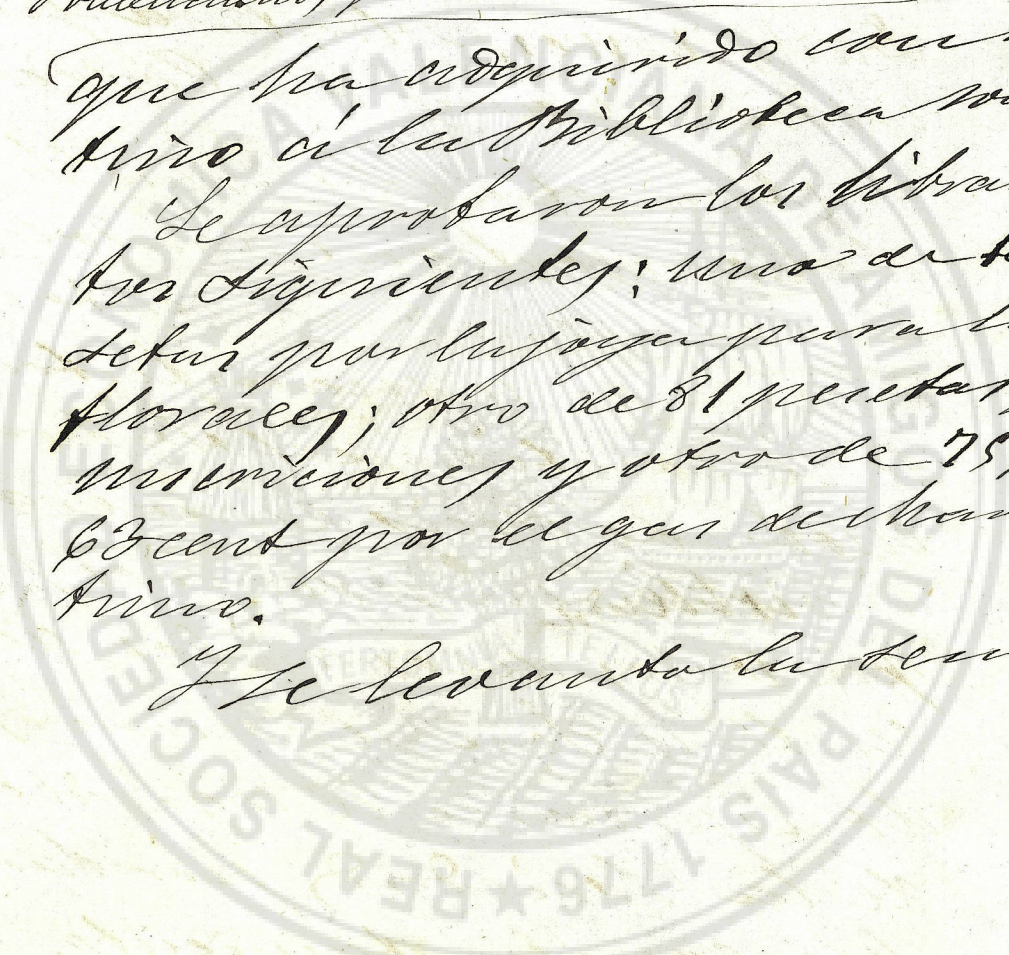 que ha adquirido con
tino á la Biblioteca
Se aprobaron los libra
tos siguientes: uno de
setas por la joya para
florales; otro de 81 pesetas
suscriciones y otro de 75
63 cent por el gas de
trimo.
Y se levantó la sesi
REAL SOCIEDAD ECONOMICA VALENCIANA DE AMIGOS DEL PAIS 1776